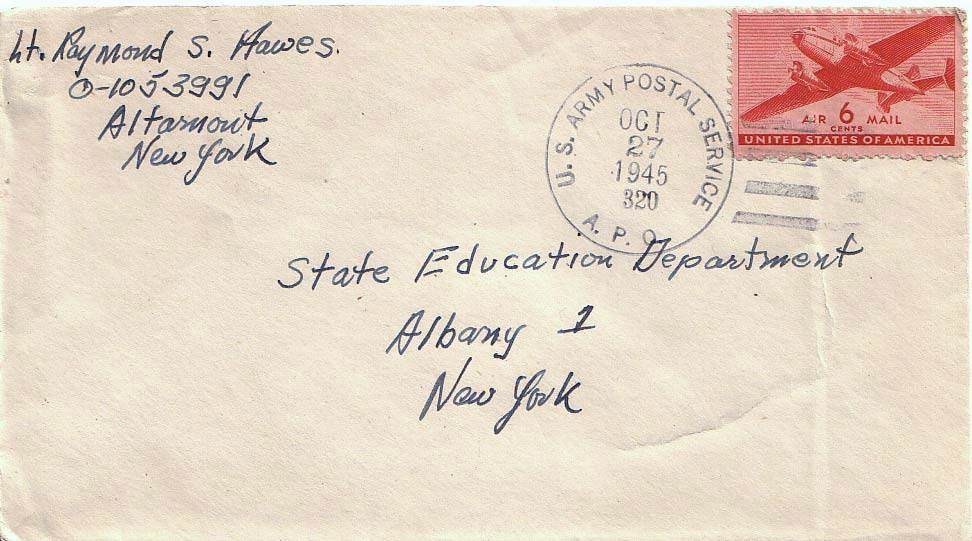 Lt. Raymond S. Hawes.
O-1053991
Altamont
New York
U.S. ARMY POSTAL SERVICE
OCT
27
1945
320
A.P.O.
AIR 6 MAIL
CENTS
UNITED STATES OF AMERICA
State Education Department
Albany 1
New York